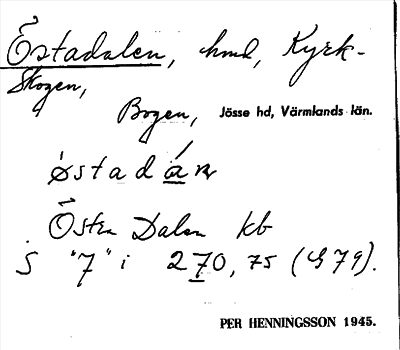 Östadalen, hmd, Kyrk-
skogen,
Bogen, Jösse hd, Värmlands län.
Östen Dalen kb
S "7" i 270,75 (G 79).
PER HENNINGSSON 1945.